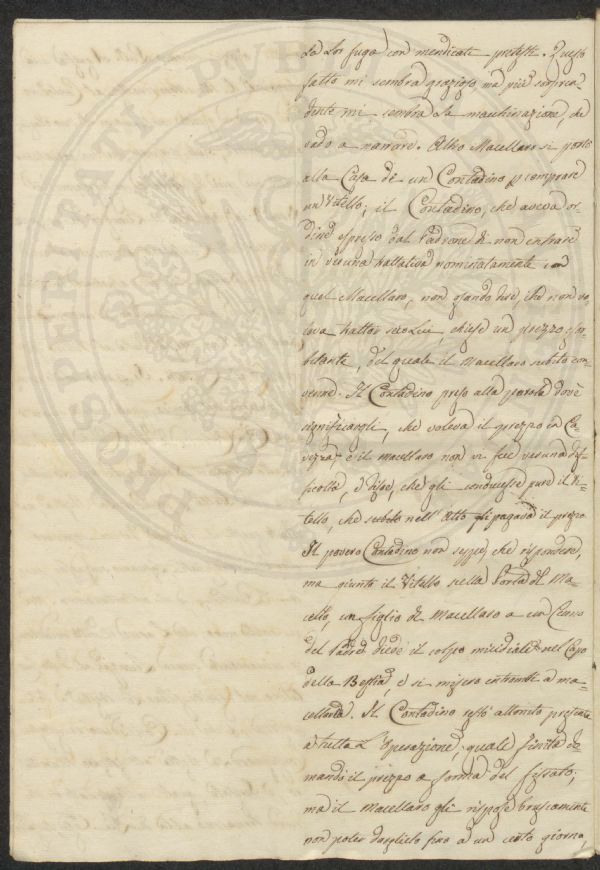 la lor fuga con mendicati pretesti. Questo
fatto mi sembra grazioso ma più sorpren-
dente mi sembra la macchinazione, che
vado a narrare. Altro Macellaro si portò
alla Casa di un Contadino p comprare
un Vitello; il Contadino, che aveva or-
dine espresso dal Padrone di non entrare
in veruna trattativa nominatamente con
quel Macellaro, non osando dire, che non vo-
leva trattar seco Lui, chiese un prezzo esor-
bitante, del quale il Macellaro subito con-
venne. Il Contadino preso alla parola dovè
significargli, che voleva il prezzo in Ca-
vezza, e il macellaro non vi fece veruna dif-
ficoltà, e disse, che gli conducesse pure il Vi-
tello, che subito nell' Atto gli pagava il prezzo
Il povero Contadino non seppe, che rispondere,
ma giunto il Vitello nella Porta del Ma-
cello, un figlio del Macellaro a un Cenno
del Padre diede il colpo micidiale nel Capo
della Bestia, e si misero entrambi a ma-
cellarla. Il Contadino restò attonito presente
a tutta l'operazione, quale finita do-
mandò il prezzo a forma del fissato;
ma il macellaro gli rispose bruscamente
non poter darglielo fino a un certo giorno,
PROSPERITATI PVBL